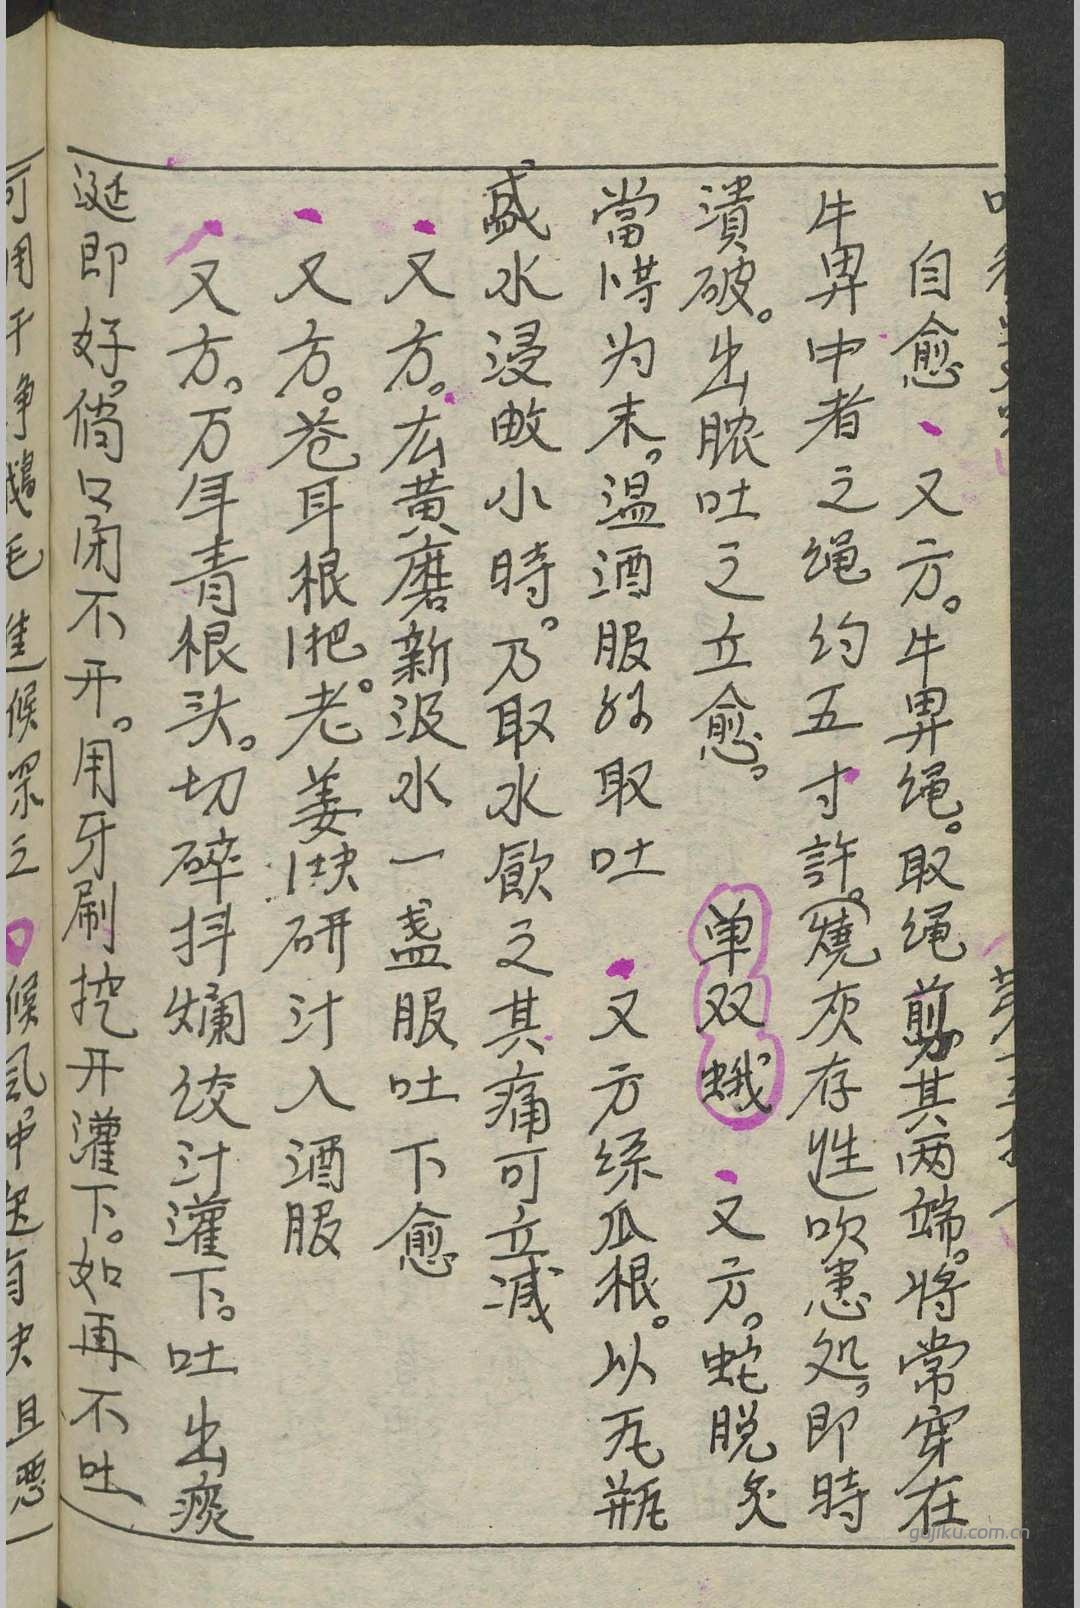 自愈 又方。牛鼻绳。取绳剪其两端。将常穿在
牛鼻中者之绳约五寸許。燒灰存性吹患处。即時
潰破。出脓吐之立愈。 单双蛾 又方。蛇脱炙
當㗖为末。温酒服好取吐 又方絲瓜根。以瓦瓶
盛水浸數小時。乃取水飲之其痛可立减
又方。広黄磨新汲水一盏服吐下愈
又方。卷耳根1把。老姜1块研汁入酒服
又方。万年青根头。切碎抖爛绞汁灌下。吐出痰
涎即好。倘口闭不开。用牙刷挖开灌下。如再不吐
可用干净鵝毛進候深之 候風中起有夬且恶
gujiku.com.cn